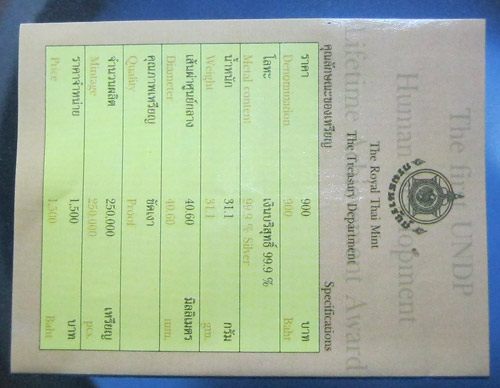 The first UNDP
Human Development
Lifetime Achievement Award
The Royal Thai Mint
The Treasury Department
คุณลักษณะของเหรียญ Specifications
ราคา 900 บาท
Denomination 900 Baht
โลหะ เงินบริสุทธิ์ 99.9 %
Metal content 99.9 % Silver
น้ำหนัก 31.1 กรัม
Weight 31.1 gm.
เส้นผ่าศูนย์กลาง 40.60 มิลลิเมตร
Diameter 40.60 mm.
คุณภาพเหรียญ ขัดเงา
Quality Proof
จำนวนผลิต 250.000 เหรียญ
Mintage 250.000 pcs.
ราคาจำหน่าย 1,500 บาท
Price 1,500 Baht